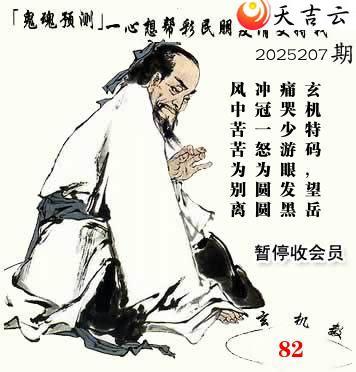 天吉云
「鬼魂预测」一心想帮彩民朋
2025207期
玄机特码,望岳
痛哭少游眼发黑
冲冠一怒为圆圆
风中苦苦为别离
暂停收会员
玄机数
82